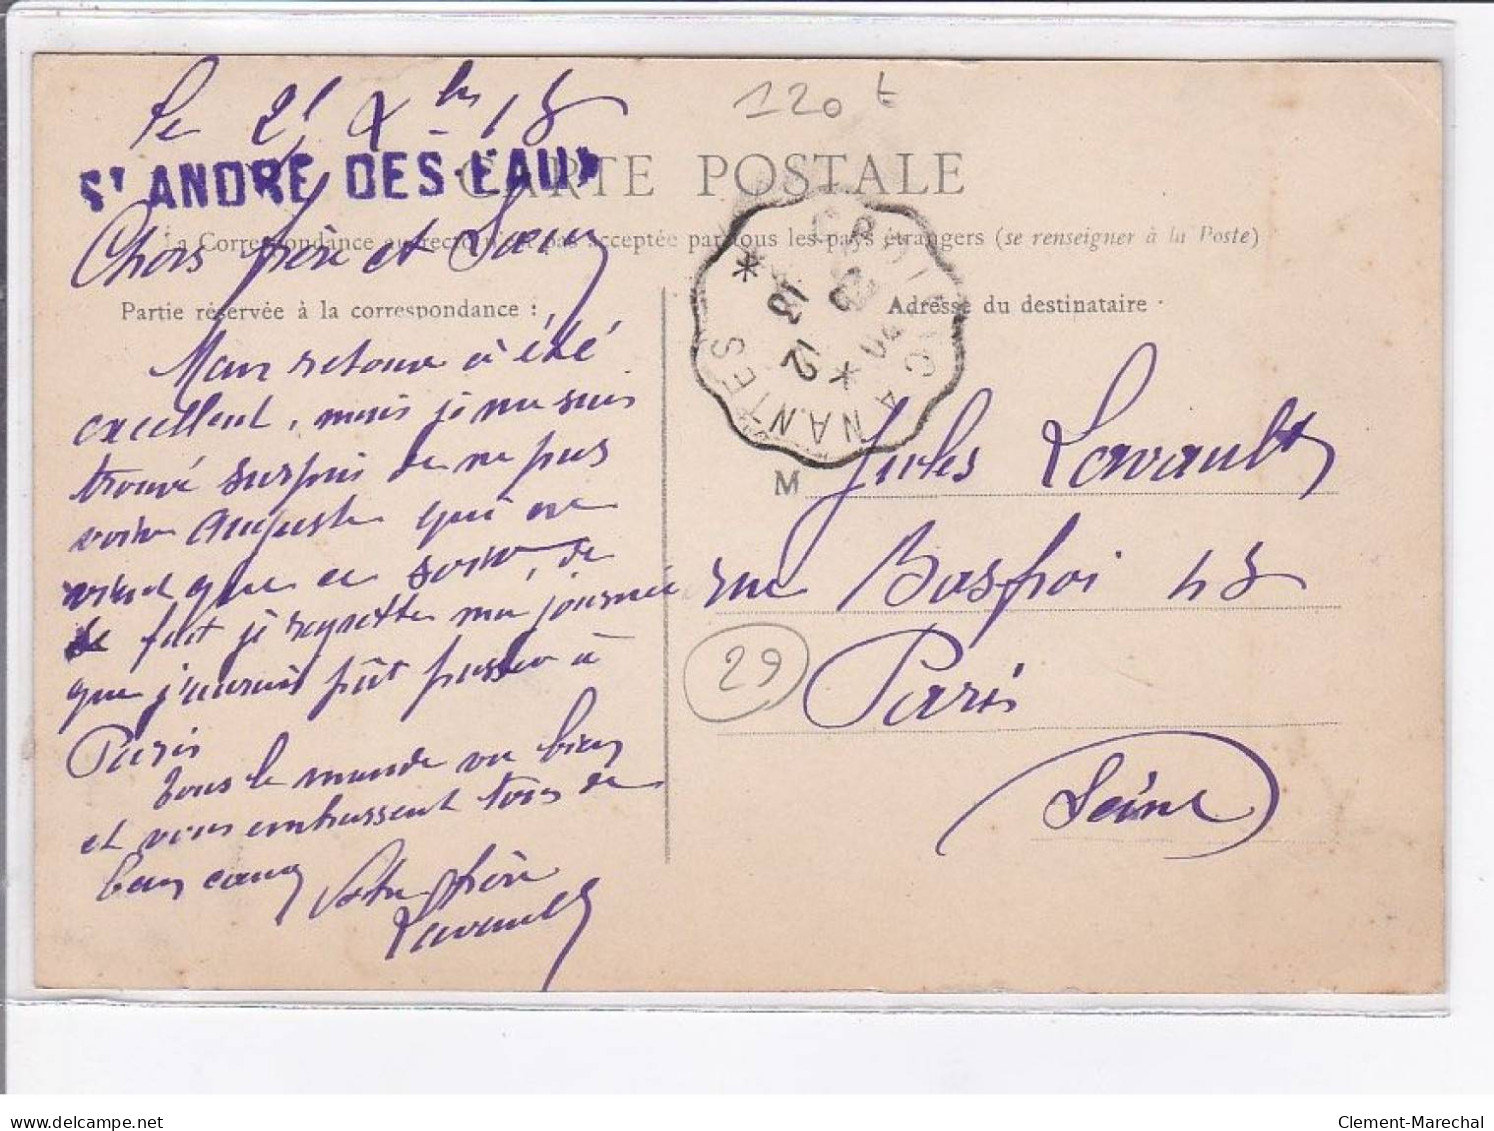 120 t
Le 21 Xbre 13
ST ANDRE DES EAUX
CARTE POSTALE
Chers frère et Sœur
La Correspondance au recto n'est pas acceptée par tous les pays étrangers (se renseigner à la Poste)
Partie réservée à la correspondance :
Adresse du destinataire
Mon retour à été
excellent, mais je me suis
trouvé surpris de ne pas
voir Auguste qui ne
vient que ce soir, de
fait je regrette ma journée
que j'aurais pût passer à
Paris
Tous le monde va bien
et vous embrassent tous de
bon cœur Votre frère
Lavault
CROISIC A NANTES
12
13
M
Jules Lavault
rue Basfroi 43
29
Paris
Seine
delcampe.net
Clement-Marechal